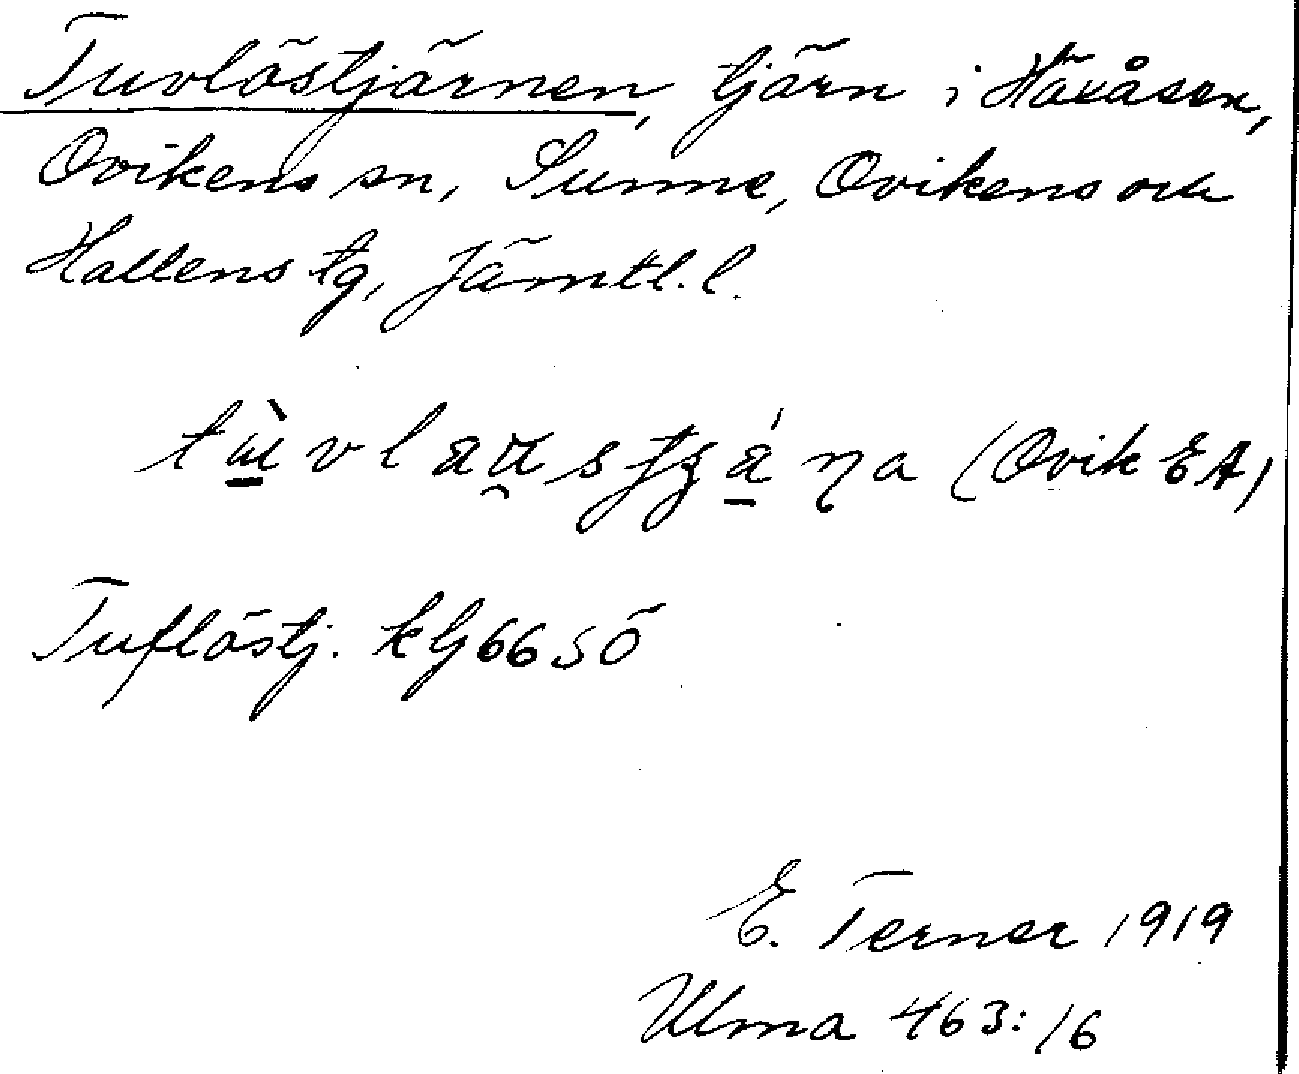 Tuvlöstjärnen, tjärn i Häxåsen,
Ovikens sn, Sunne, Ovikens och
Hallens tg, Jämtl. l.
(Ovik EA)
Tuflöstj. kbl 66 SÖ
E. Terner 1919
Ulma 463:16